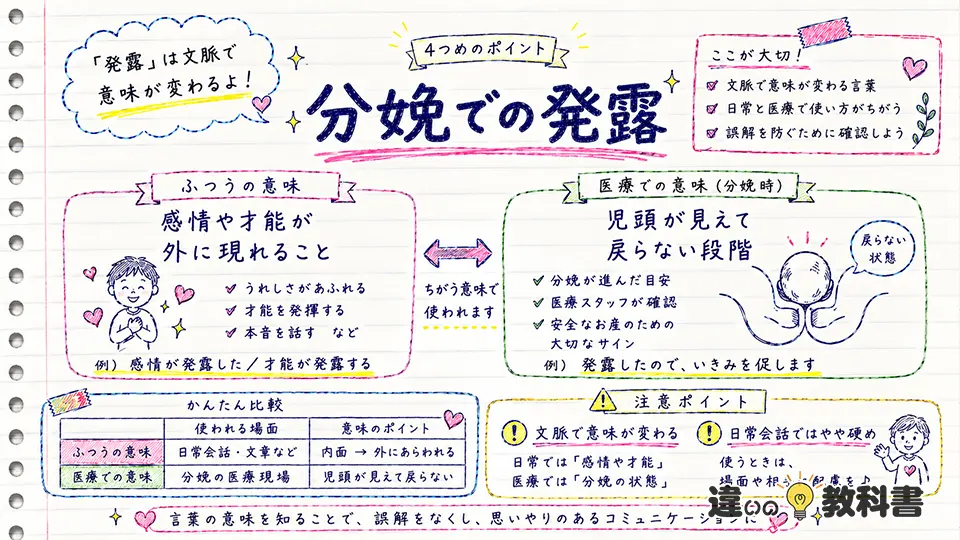 「発露」は文脈で
意味が変わるよ！
4つめのポイント
分娩での発露
ここが大切！
文脈で意味が変わる言葉
日常と医療で使い方がちがう
誤解を防ぐために確認しよう
ふつうの意味
感情や才能が
外に現れること
うれしさがあふれる
才能を発揮する
本音を話す など
例）感情が発露した／才能が発露する
ちがう意味で
使われます
医療での意味（分娩時）
児頭が見えて
戻らない段階
分娩が進んだ目安
医療スタッフが確認
安全なお産のための
大切なサイン
戻らない
状態
例）発露したので、いきみを促します
かんたん比較
使われる場面 意味のポイント
ふつうの意味 日常会話・文章など 内面 → 外にあらわれる
医療での意味 分娩の医療現場 児頭が見えて戻らない
注意ポイント
文脈で意味が変わる
日常では「感情や才能」
医療では「分娩の状態」
日常会話ではやや硬め
使うときは、
場面や相 配慮を♪
言葉の意味を知ることで、誤解をなくし、思いやりのあるコミュニケーションに
違いの教科書